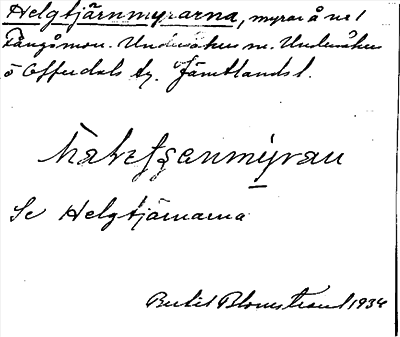 Helgtjärnmyrarna, myrar å nr 1
Tångömon. Undersåkers sn. Undersåkers
o Offerdals tg. Jämtlands l.
Se Helgtjärnarna
Bertil Blomstrand 1934